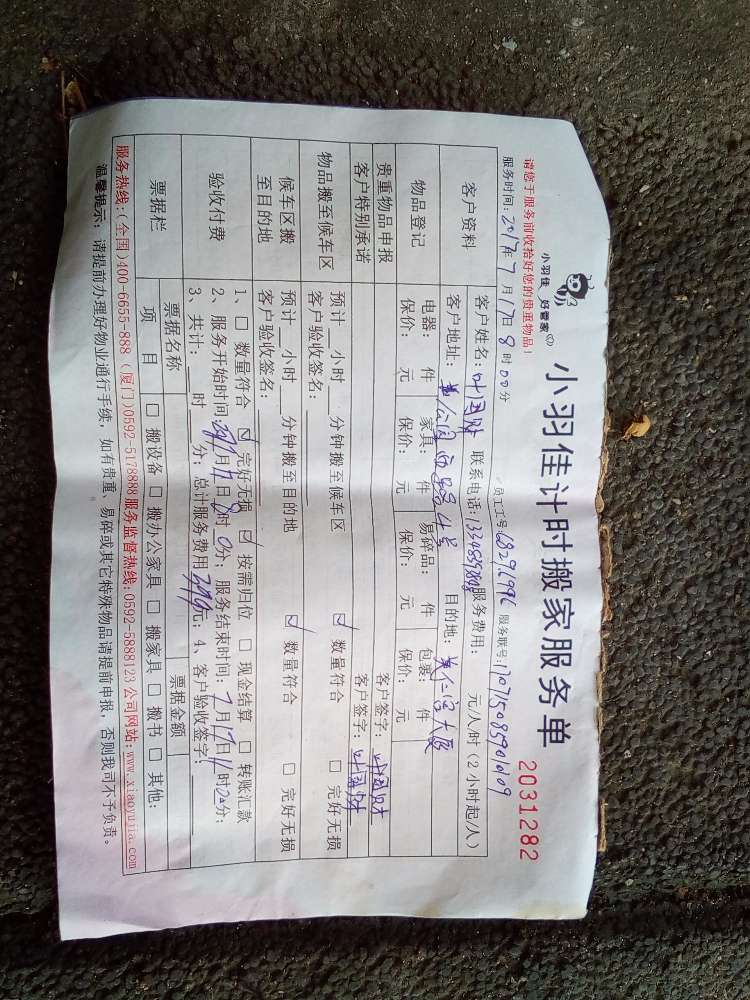 小羽佳 好管家
小羽佳计时搬家服务单
2031282
请您于服务前收拾好您的贵重物品!
服务时间: 2017年7月17日8时00分 员工工号: 服务联号:
客户资料 客户姓名: 联系电话: 服务费用: 元/人/时(2小时起/人)
客户地址: 目的地:
物品登记 电器: 件 家具: 件 易碎品: 件 包裹: 件
保价: 元 保价: 元 保价: 元 保价: 元
贵重物品申报 客户签字:
客户特别承诺 客户签字:
物品搬至候车区 预计__小时__分钟搬至候车区 ☑ 数量符合 □ 完好无损
客户验收签名:
候车区搬至目的地 预计__小时__分钟搬至目的地 ☑ 数量符合 □ 完好无损
客户验收签名:
验收付费 1、□ 数量符合 ☑ 完好无损 ☑ 按需归位 □ 现金结算 □ 转账汇款
2、服务开始时间: 月17日8时0分; 服务结束时间: 7月17日11时20分;
3、共计:__时__分; 总计服务费用 元; 4、客户验收签字:
票据栏 票据名称 票据金额
项 目 □ 搬设备 □ 搬办公家具 □ 搬家具 □ 搬书 □ 其他:
服务热线:(全国)400-6655-888 (厦门)0592-5178888 服务监督热线:0592-5888123 公司网站:www.xiaoyujia.com
温馨提示: 请提前办理好物业通行手续, 如有贵重、易碎或其它特殊物品请提前申报, 否则我司不予负责。